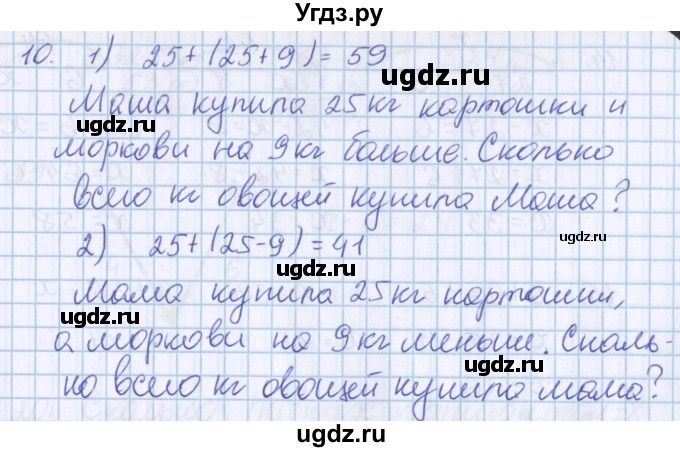 Угдз.ру
10. 1) 25+(25+9)=59
ugdz.ru
Маша купила 25кг картошки и
ugdz.ru
моркови на 9кг больше. Сколько
ugdz.ru
всего кг овощей купила Маша?
2) 25+(25-9)=41
ugdz.ru
ugdz.ru
Мама купила 25кг картошки,
ugdz.ru
а моркови на 9кг меньше. Сколь-
ugdz.ru
ко всего кг овощей купила мама?
ugdz.ru
ugdz.ru